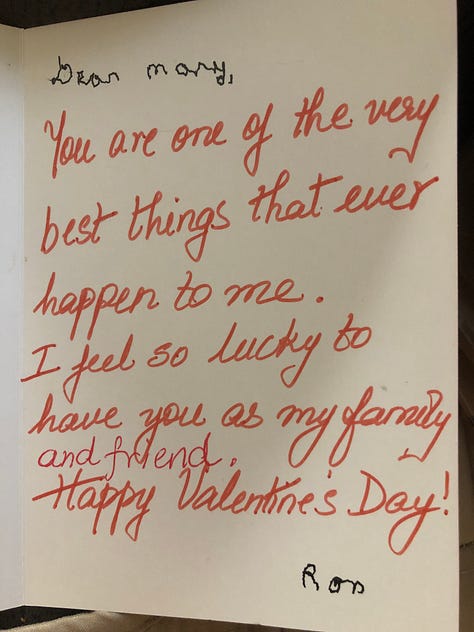 Dear mary,
You are one of the very
best things that ever
happen to me.
I feel so lucky to
have you as my family
and friend.
Happy Valentine's Day!
Ron